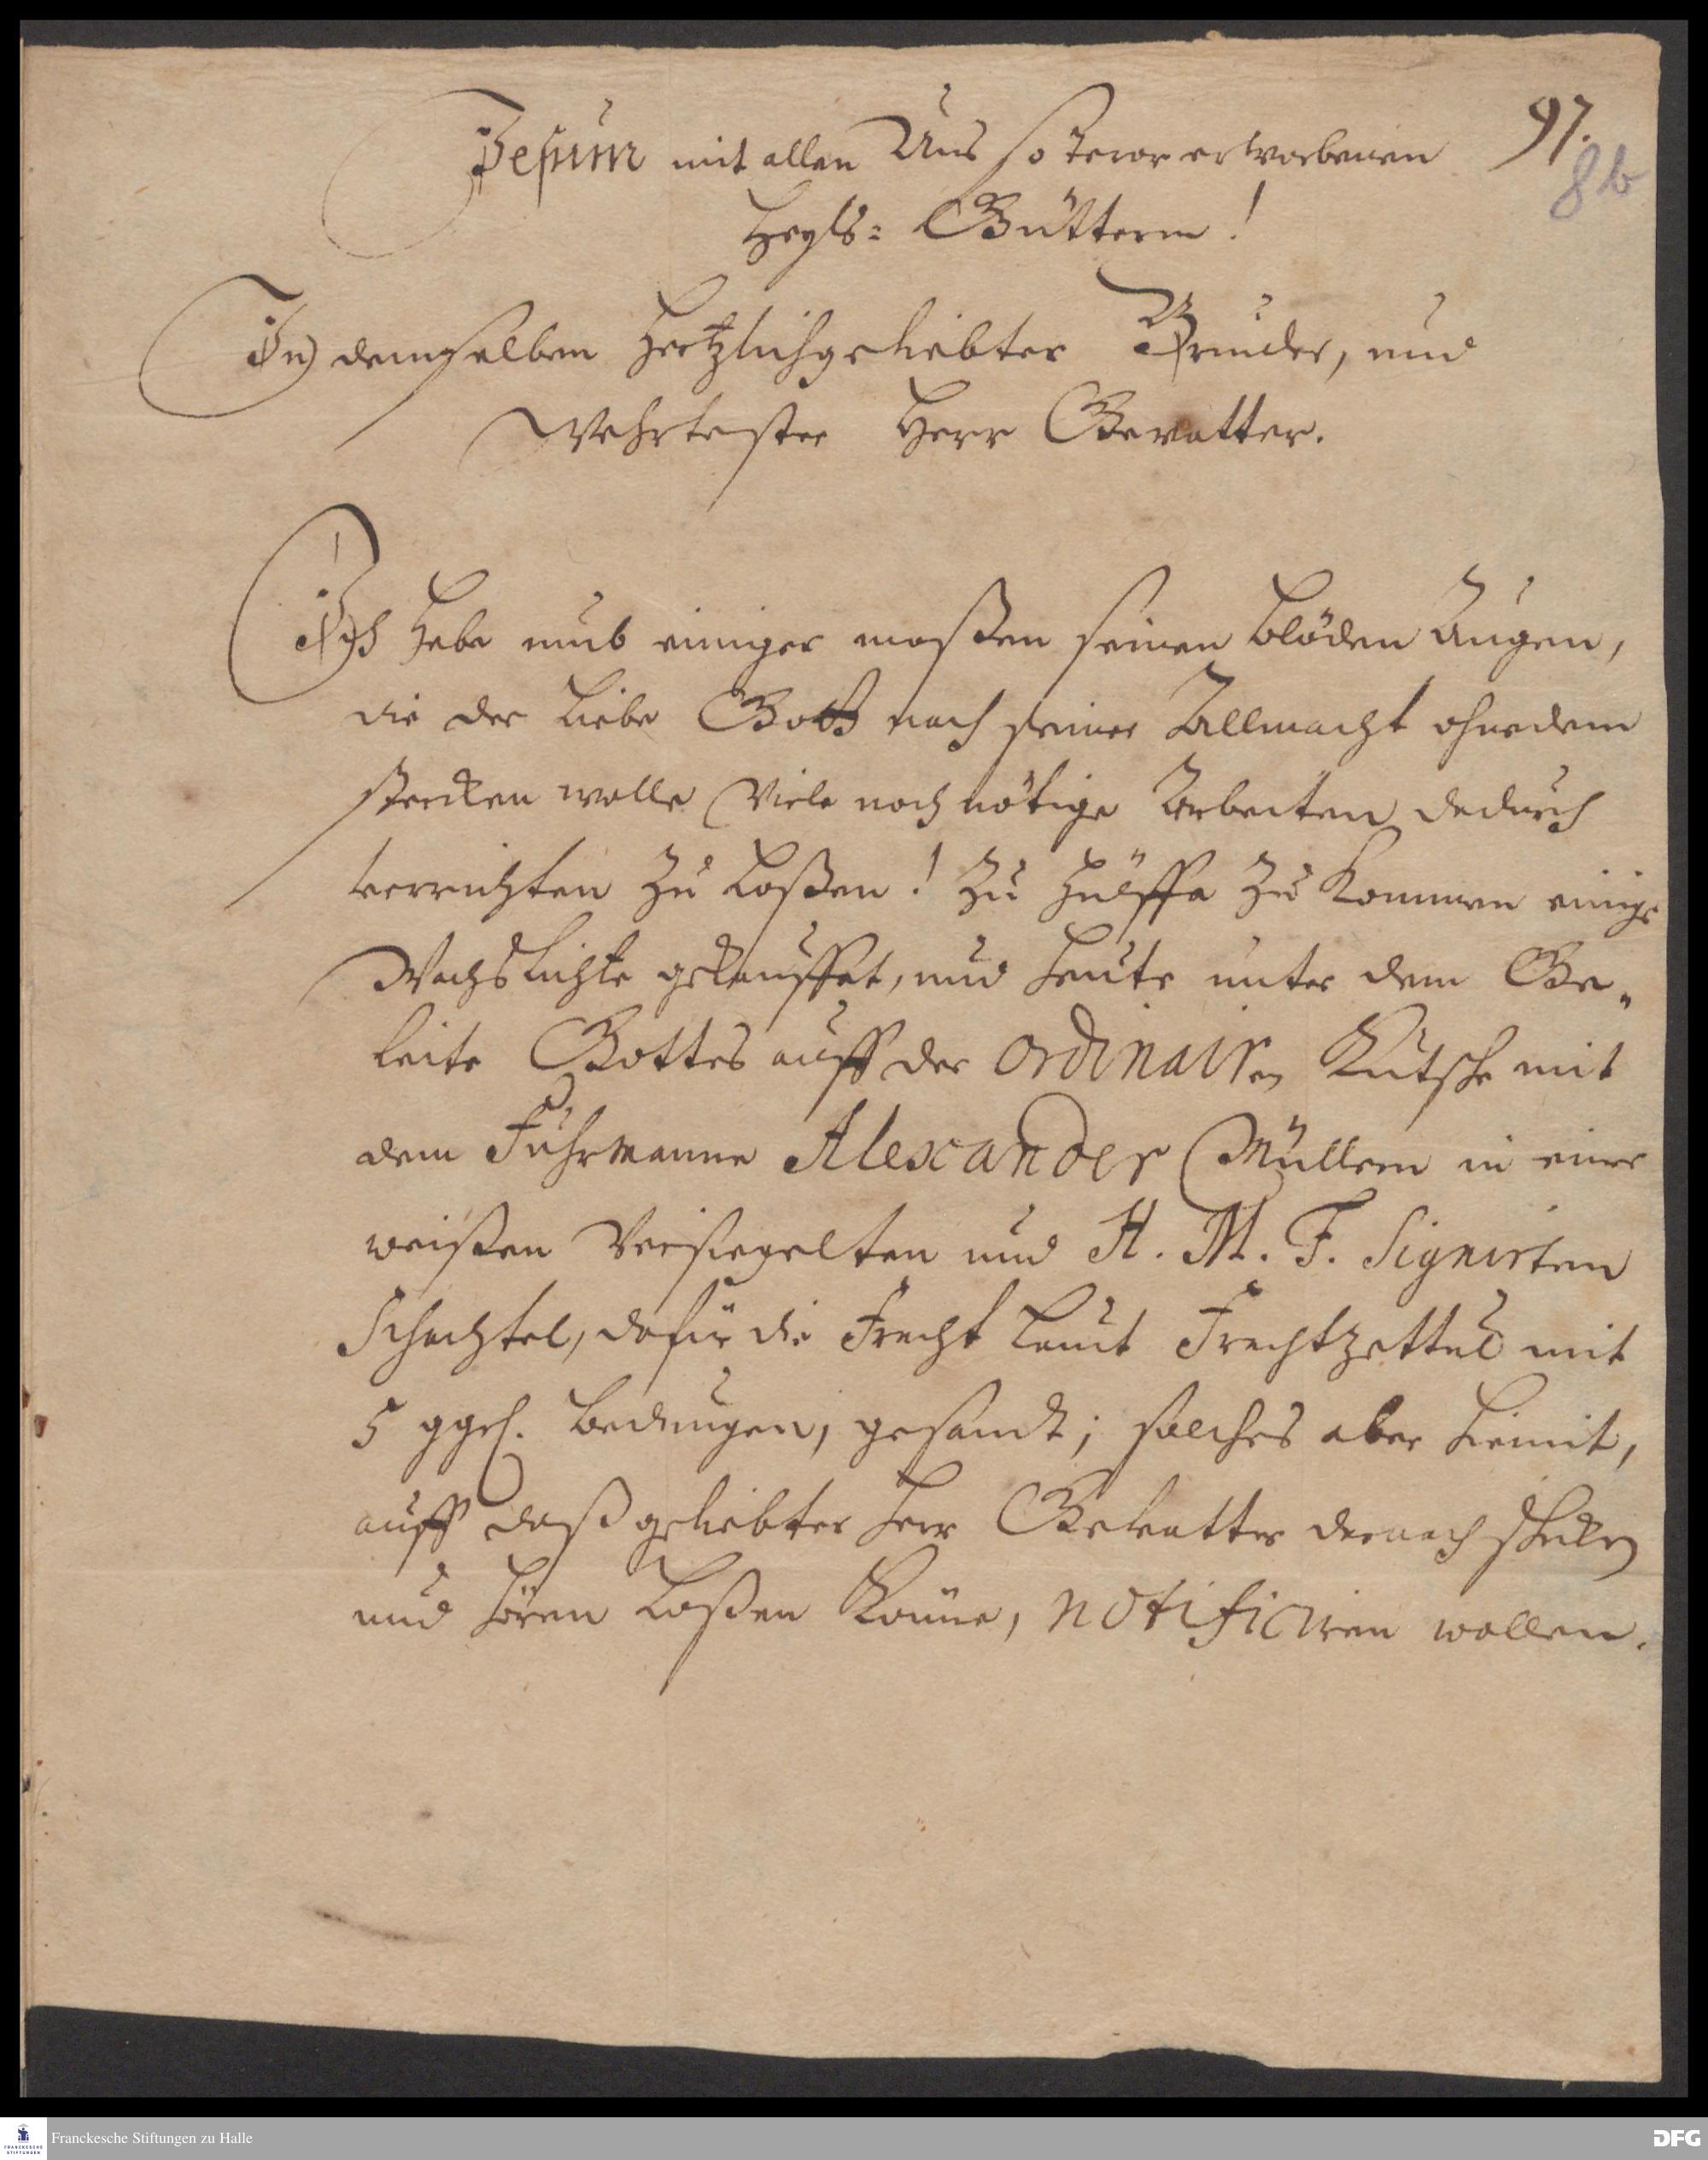 97.
8b
Jesum mit allen Uns so teror erworbenen
Heyls= Güttern!
In demselben Hertzlichgeliebter Bruder, und
Wehrtester Herr Gevatter.
Ich habe umb einiger maßen seinen blöden Augen,
die der Liebe Gott nach seiner Allmacht ohnedem
stercken wolle viele noch nötige Arbeiten dedurch
verrichten zu laßen! zu hülffe zu kommen einige
Wachslichte gekauffet, und heute unter dem Ge„
leite Gottes auff der ordinairen Kutsche mit
dem Fuhrmanne Alexander Müllern in einer
weißen versiegelten und H. M. F. signirten
Schachtel, dafür die Fracht laut Frachtzettul mit
5 ggl. bedungen, gesandt; solches aber hiemit,
auff daß geliebter Herr Gevatter darnach schicken
und hören laßen könne, notificiren wollen.
Franckesche Stiftungen zu Halle
FRANCKESCHE
STIFTUNGEN
DFG